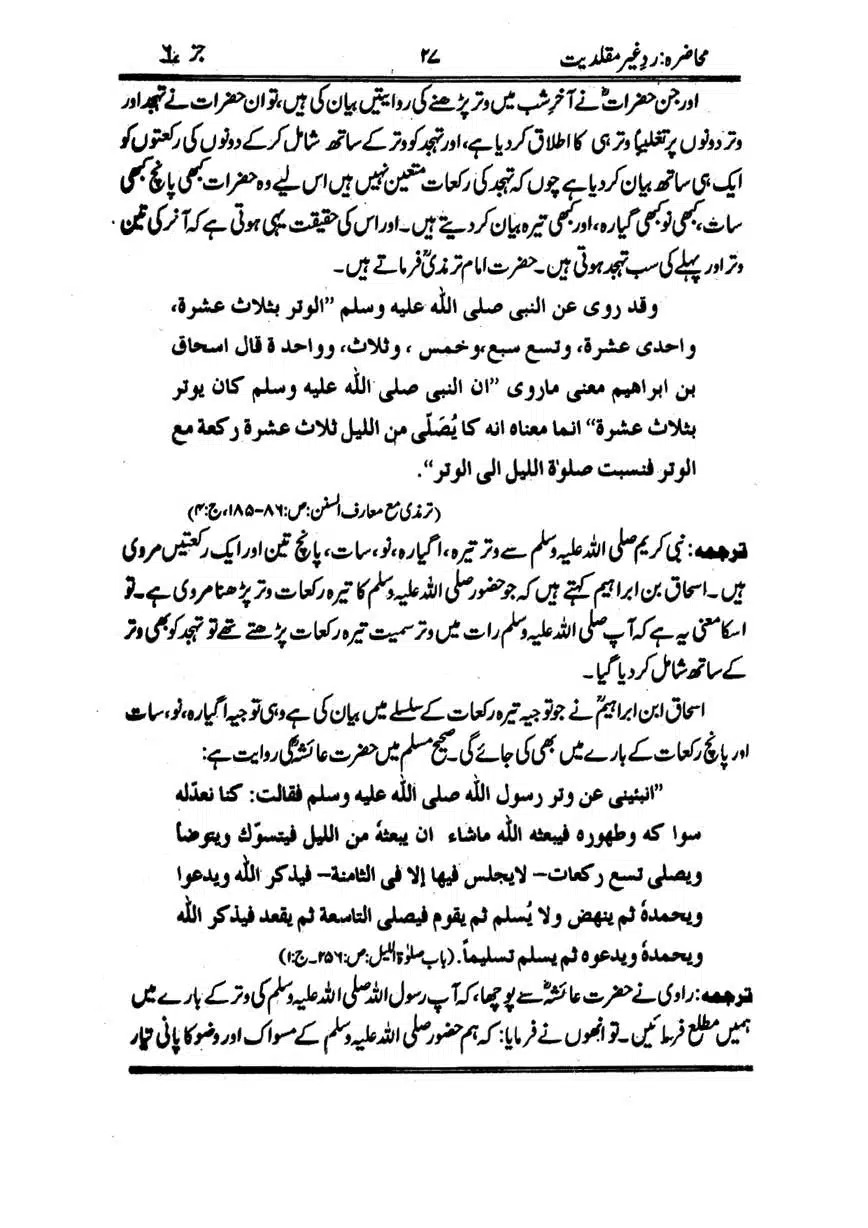 محاضرہ: ردِ غیر مقلدیت ۲۷
اور جن حضراتؓ نے آخرِ شب میں وتر پڑھنے کی روایتیں بیان کی ہیں، تو ان حضرات نے تہجد اور
وتر دونوں پر تغلیباً وتر ہی کا اطلاق کر دیا ہے، اور تہجد کو وتر کے ساتھ شامل کر کے دونوں کی رکعتوں کو
ایک ہی ساتھ بیان کر دیا ہے چوں کہ تہجد کی رکعات متعین نہیں ہیں اس لیے وہ حضرات کبھی پانچ کبھی
سات، کبھی نو کبھی گیارہ، اور کبھی تیرہ بیان کر دیتے ہیں۔ اور اس کی حقیقت یہی ہوتی ہے کہ آخر کی تین
وتر اور پہلے کی سب تہجد ہوتی ہیں۔ حضرت امام ترمذیؒ فرماتے ہیں۔
وقد روی عن النبی صلی اللہ علیہ وسلم ”الوتر بثلاث عشرة،
واحدی عشرة، وتسع سبع، وخمس ، وثلاث، وواحد ة قال اسحاق
بن ابراھیم معنی ماروی ”ان النبی صلی اللہ علیہ وسلم کان یوتر
بثلاث عشرة“ انما معناہ انہ کا یُصَلّی من اللیل ثلاث عشرة رکعة مع
الوتر فنسبت صلوٰة اللیل الی الوتر“.
(ترمذی مع معارف السنن: ص: ۸۶–۱۸۵، ج: ۴)
ترجمہ: نبی کریم صلی اللہ علیہ وسلم سے وتر تیرہ، اگیارہ، نو، سات، پانچ تین اور ایک رکعتیں مروی
ہیں۔ اسحاق بن ابراہیم کہتے ہیں کہ جو حضور صلی اللہ علیہ وسلم کا تیرہ رکعات وتر پڑھنا مروی ہے۔ تو
اسکا معنی یہ ہے کہ آپ صلی اللہ علیہ وسلم رات میں وتر سمیت تیرہ رکعات پڑھتے تھے تو تہجد کو بھی وتر
کے ساتھ شامل کر دیا گیا۔
اسحاق ابن ابراہیمؒ نے جو توجیہ تیرہ رکعات کے سلسلے میں بیان کی ہے وہی توجیہ اگیارہ، نو، سات
اور پانچ رکعات کے بارے میں بھی کی جائے گی۔ صحیح مسلم میں حضرت عائشہؓ کی روایت ہے:
”انبئینی عن وتر رسول اللہ صلی اللہ علیہ وسلم فقالت: کنا نعدّلہ
سوا کہ وطھورہ فیبعثہ اللہ ماشاء ان یبعثہٗ من اللیل فیتسوّک ویتوضأ
ویصلی تسع رکعات– لایجلس فیھا إلا فی الثامنة– فیذکر اللہ ویدعوا
ویحمدہٗ ثم ینھض ولا یُسلم ثم یقوم فیصلی التاسعة ثم یقعد فیذکر اللہ
ویحمدہٗ ویدعوہ ثم یسلم تسلیماً. (باب صلوٰة اللیل: ص: ۲۵۶۔ ج: ۱)
ترجمہ: راوی نے حضرت عائشہؓ سے پوچھا، کہ آپ رسول اللہ صلی اللہ علیہ وسلم کی وتر کے بارے میں
ہمیں مطلع فرمائیں۔ تو انھوں نے فرمایا: کہ ہم حضور صلی اللہ علیہ وسلم کے مسواک اور وضو کا پانی تیار